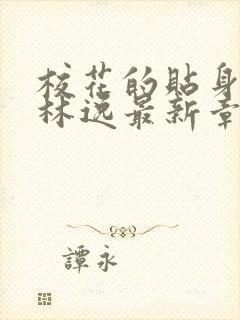 校花的貼身
林逸最新章
譚永